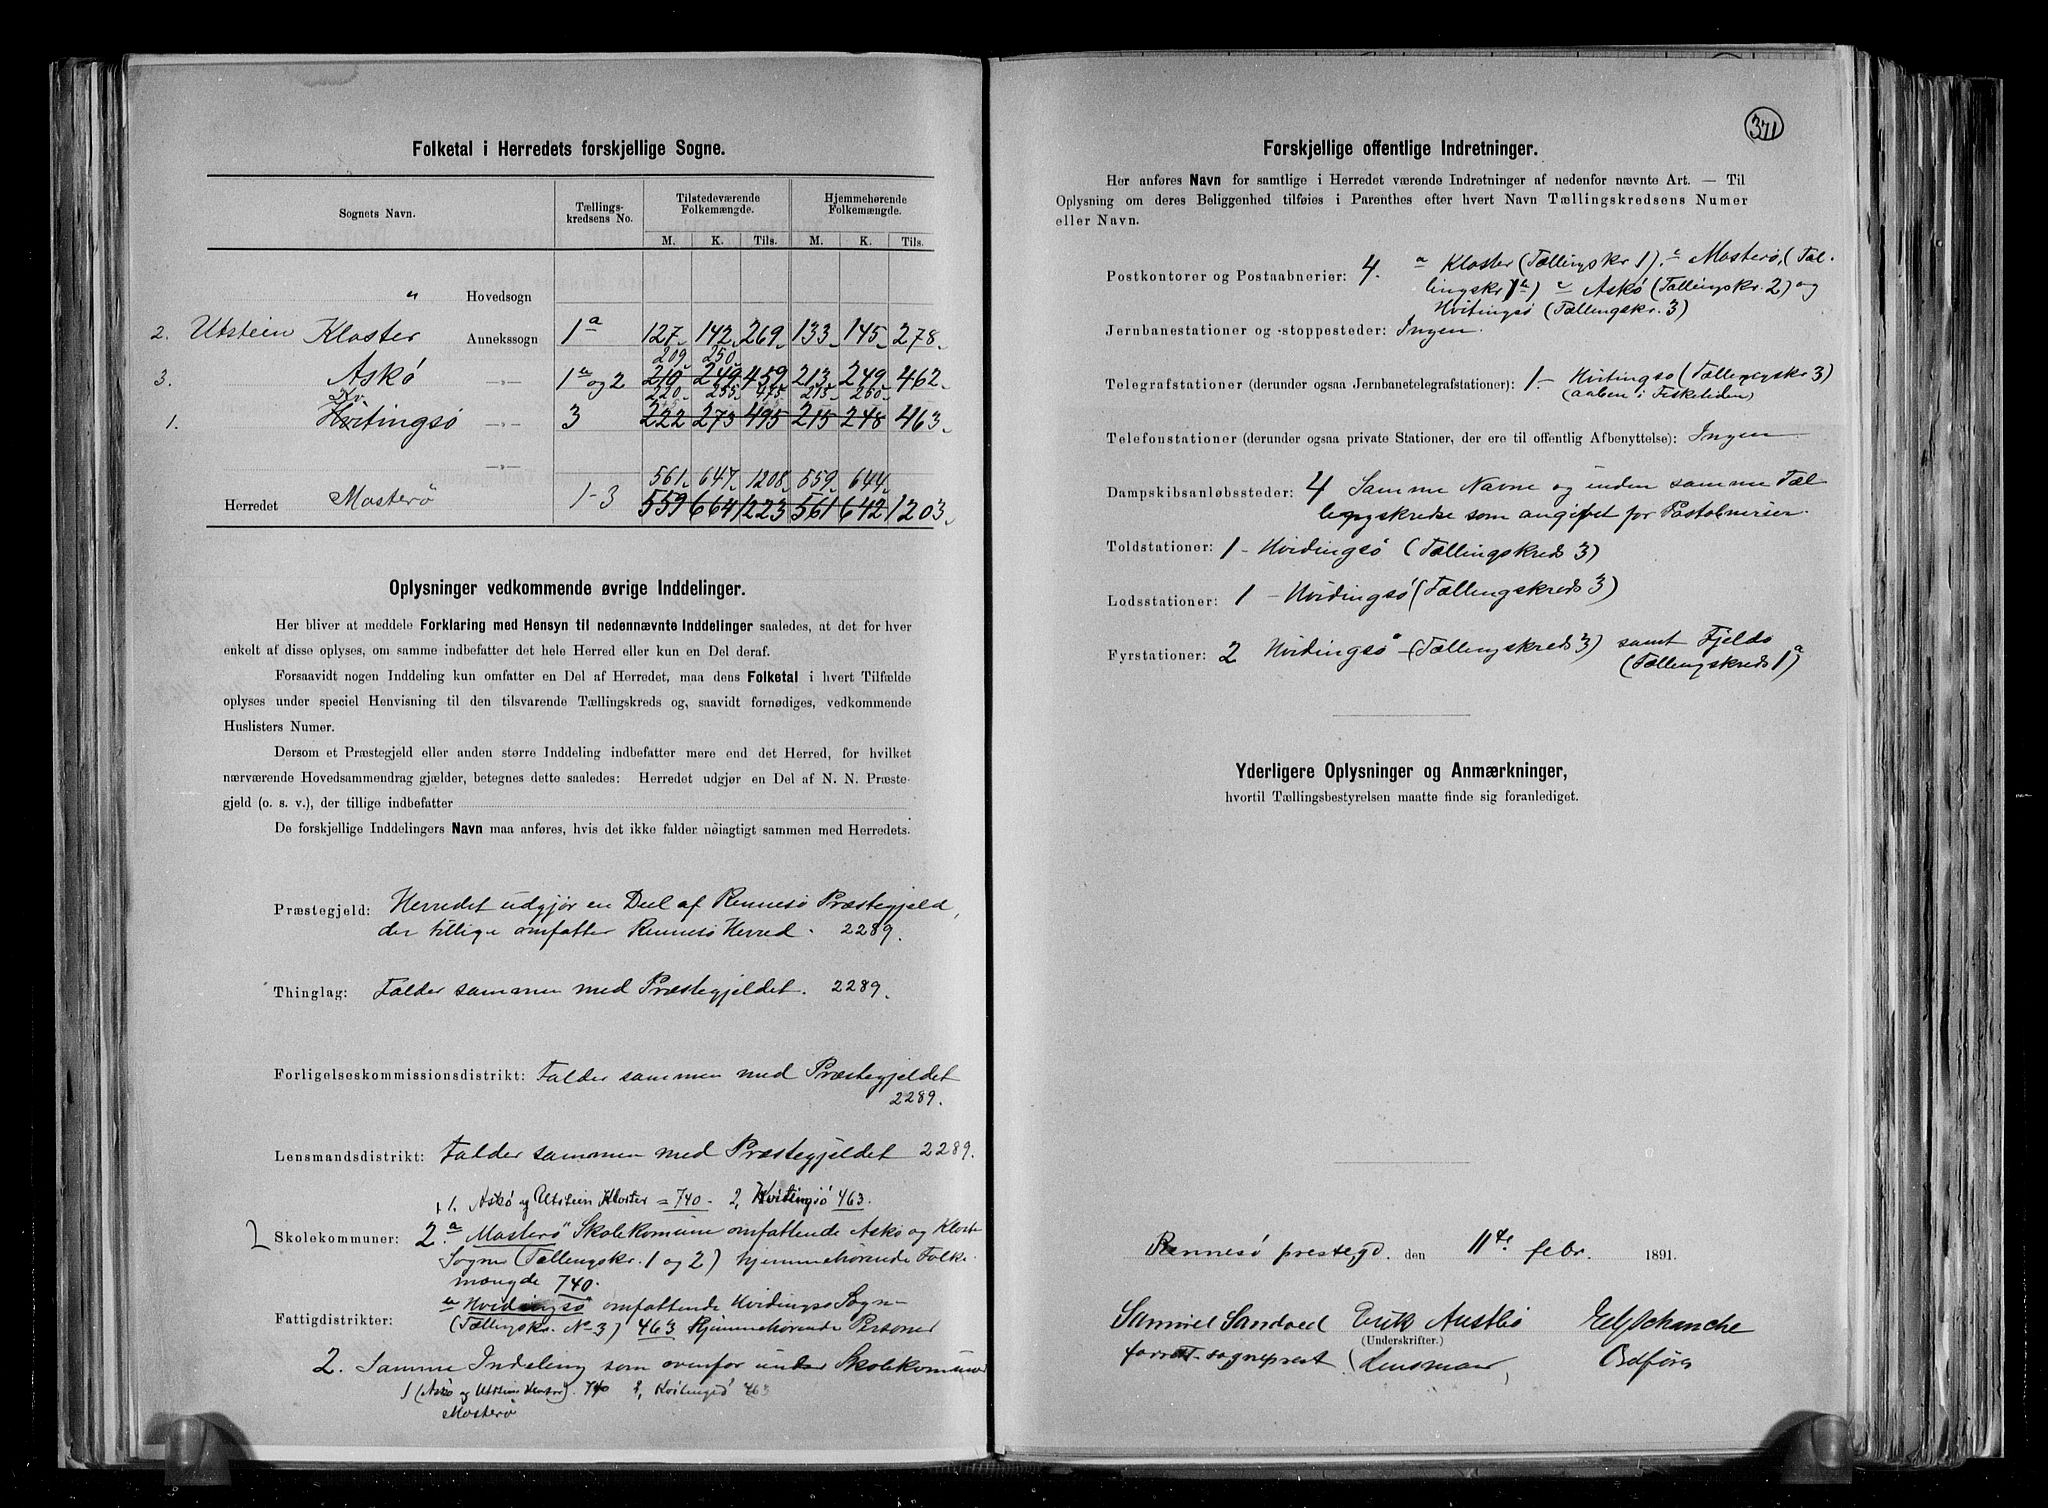 Folketal i Herredets forskjellige Sogne.
Sognets Navn. Tællings- kredsens No. Tilstedeværende Folkemængde. Hjemmehørende Folkemængde.
M. K. Tils. M. K. Tils.
„ Hovedsogn
2. Utstein Kloster Annekssogn 1a 127 142 269 133 145 278
209 250
3. Askö —„— 1b og 2 210 249 459 213 249 462
220 255 475 213 250
1. Hvitingsö —„— 3 222 273 495 215 248 463
—„—
561 647 1208 559 644
Herredet Mosterö 1-3 559 664 1223 561 642 1203
Oplysninger vedkommende øvrige Inddelinger.
Her bliver at meddele Forklaring med Hensyn til nedennævnte Inddelinger saaledes, at det for hver
enkelt af disse oplyses, om samme indbefatter det hele Herred eller kun en Del deraf.
Forsaavidt nogen Inddeling kun omfatter en Del af Herredet, maa dens Folketal i hvert Tilfælde
oplyses under speciel Henvisning til den tilsvarende Tællingskreds og, saavidt fornødiges, vedkommende
Huslisters Numer.
Dersom et Præstegjeld eller anden større Inddeling indbefatter mere end det Herred, for hvilket
nærværende Hovedsammendrag gjælder, betegnes dette saaledes: Herredet udgjør en Del af N. N. Præste-
gjeld (o. s. v.), der tillige indbefatter
De forskjellige Inddelingers Navn maa anføres, hvis det ikke falder nøiagtigt sammen med Herredets.
Præstegjeld: Herredet udgjør en Deel af Rennesö Præstegjeld,
der tillige omfatter Rennesö Herred. 2289.
Thinglag: Falder sammen med Præstegjeldet. 2289.
Forligelseskommissionsdistrikt: Falder sammen med Præstegjeldet
2289.
Lensmandsdistrikt: Falder sammen med Præstegjeldet 2289.
1. Askö og Utstein Kloster = 740. 2, Kvitingsö 463.
2 Skolekommuner: 2. a Mosterö Skolekomune omfattende Askö og Kloster
Sogne (Tællingskr. 1 og 2) hjemmehörende Folke-
mængde 740.
b Hvidingsö omfattende Hvidingsö Sogn
Fattigdistrikter: (Tællingskr. No 3) 463 hjemmehörende Personer
2. Samme Indeling som ovenfor under Skolekomuner
1 (Askö og Utstein Kloster). 740 2, Kvitingsö 463
Mosterö
371
Forskjellige offentlige Indretninger.
Her anføres Navn for samtlige i Herredet værende Indretninger af nedenfor nævnte Art. — Til
Oplysning om deres Beliggenhed tilføies i Parenthes efter hvert Navn Tællingskredsens Numer
eller Navn.
Postkontorer og Postaabnerier: 4. a Kloster (Tællingskr 1). b Mosterö, (Tæl-
lingskr 1b) c Askö (Tællingskr. 2) og
Hvitingsö (Tællingskr. 3)
Jernbanestationer og -stoppesteder: Ingen.
Telegrafstationer (derunder ogsaa Jernbanetelegrafstationer): 1 - Hvitingsö (Tællingskr 3)
(aaben i Fisketiden)
Telefonstationer (derunder ogsaa private Stationer, der ere til offentlig Afbenyttelse): Ingen
Dampskibsanløbssteder: 4 Samme Navne og under samme Tæl
lingskredse som angivet for Postabnerier.
Toldstationer: 1 - Hvidingsö (Tællingskreds 3)
Lodsstationer: 1 - Hvidingsö (Tællingskreds 3)
Fyrstationer: 2 Hvidingsö - (Tællingskreds 3) samt Fjeldö
(Tællingskreds 1a)
Yderligere Oplysninger og Anmærkninger,
hvortil Tællingsbestyrelsen maatte finde sig foranlediget.
Rennesö prestegd. den 11te febr. 1891.
Samuel Sandved Erik Austbö Schanche
(Underskrifter.)
sogneprest Lensmand, Ordfører